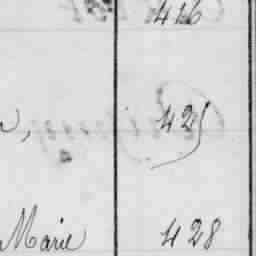 426
425
Marie 428